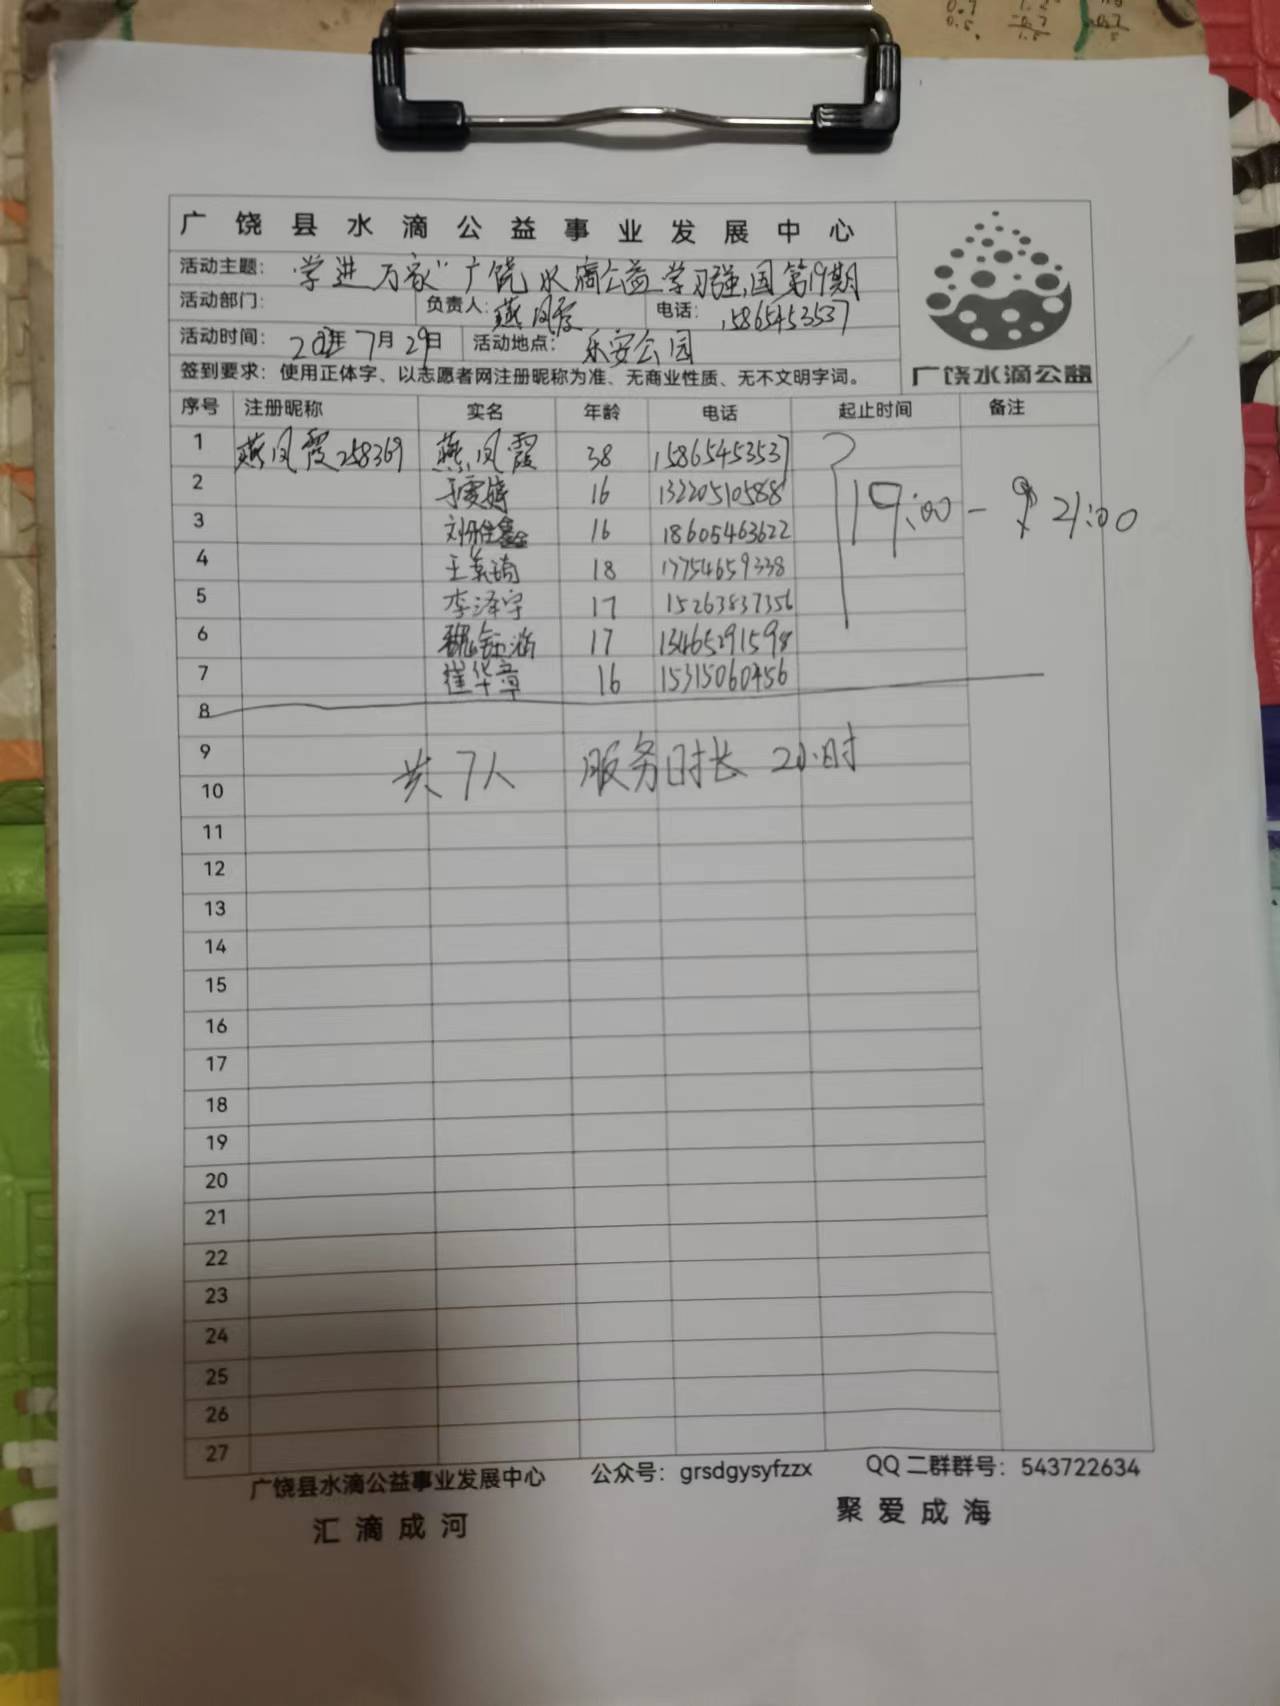 广饶县水滴公益事业发展中心
广饶水滴公益
活动主题：“学进万家”广饶水滴公益学习强国第19期
活动部门： 负责人：燕凤霞 电话：15865453537
活动时间： 7月29日 活动地点：乐安公园
签到要求：使用正体字、以志愿者网注册昵称为准、无商业性质、无不文明字词。
序号 注册昵称 实名 年龄 电话 起止时间 备注
1 燕凤霞258369 燕凤霞 38 15865453537
2 16 13220510588 19:00 - 21:00
3 16 18605463622
4 18 17754659338
5 李泽宇 17 15263837356
6 17 13465291598
7 崔华章 16 15315060456
8
9 共7人 服务时长 2小时
10
11
12
13
14
15
16
17
18
19
20
21
22
23
24
25
26
27
广饶县水滴公益事业发展中心 公众号：grsdgysyfzzx QQ二群群号：543722634
汇滴成河 聚爱成海